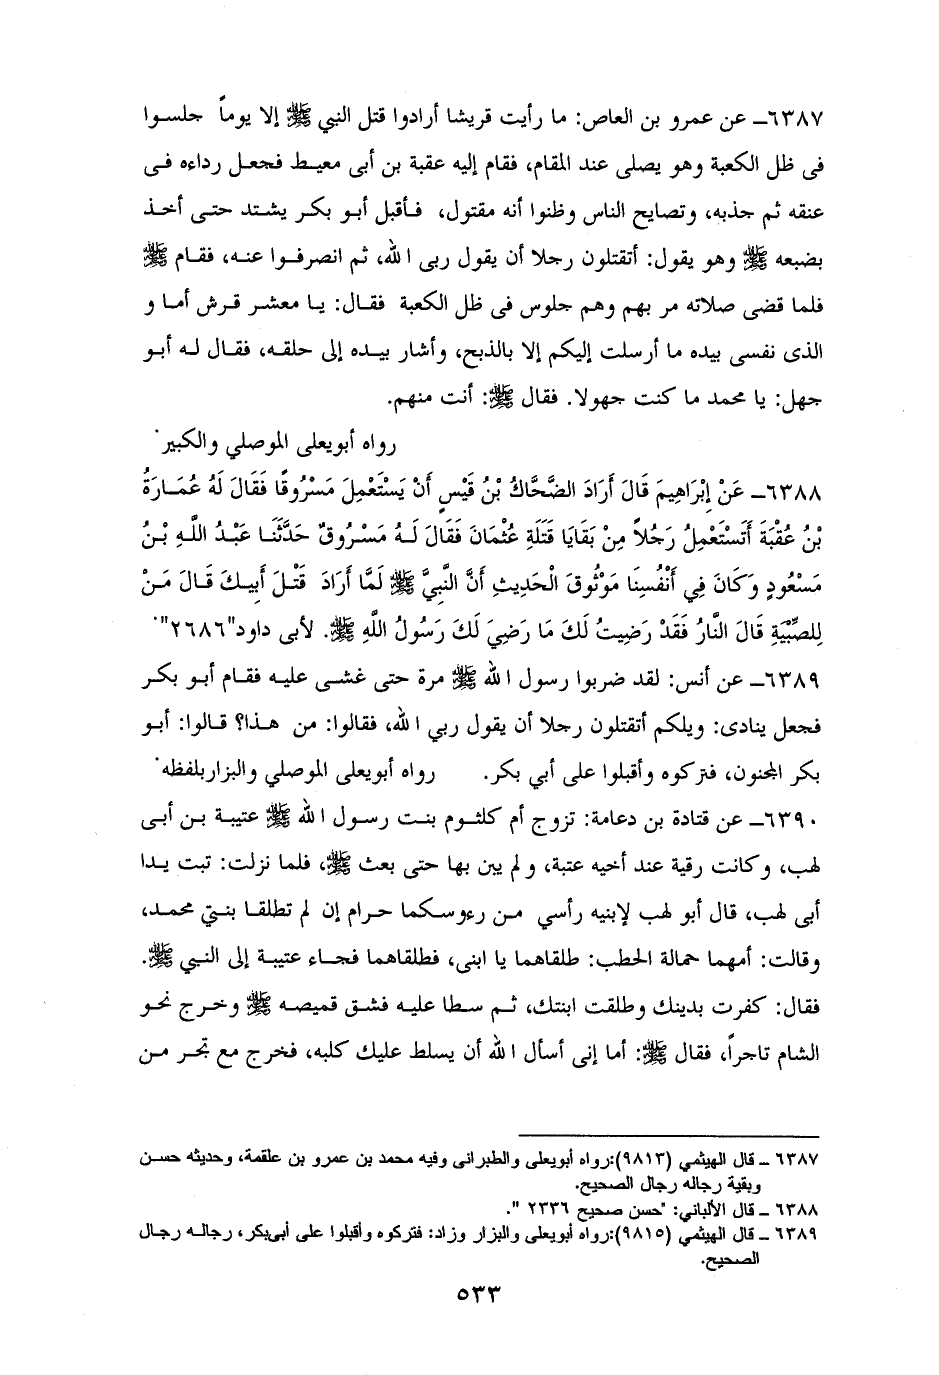 ٦٣٨٧ــ عن عمرو بن العاص: ما رأيت قريشا أرادوا قتل النبي ﷺ إلا يوماً جلسوا
فى ظل الكعبة وهو يصلى عند المقام، فقام إليه عقبة بن أبى معيط فجعل رداءه فى
عنقه ثم جذبه، وتصايح الناس وظنوا أنه مقتول، فأقبل أبو بكر يشتد حتى أخذ
بضبعه ﷺ وهو يقول: أتقتلون رجلا أن يقول ربى الله، ثم انصرفوا عنه، فقام ﷺ
فلما قضى صلاته مر بهم وهم جلوس فى ظل الكعبة فقال: يا معشر قرش أما و
الذى نفسى بيده ما أرسلت إليكم إلا بالذبح، وأشار بيده إلى حلقه، فقال له أبو
جهل: يا محمد ما كنت جهولا. فقال ﷺ: أنت منهم.
رواه أبويعلى الموصلي والكبير.
٦٣٨٨ــ عَنْ إِبْرَاهِيمَ قَالَ أَرَادَ الضَّحَّاكُ بْنُ قَيْسٍ أَنْ يَسْتَعْمِلَ مَسْرُوقًا فَقَالَ لَهُ عُمَارَةُ
بْنُ عُقْبَةَ أَتَسْتَعْمِلُ رَجُلاً مِنْ بَقَايَا قَتَلَةِ عُثْمَانَ فَقَالَ لَهُ مَسْرُوقٌ حَدَّثَنَا عَبْدُ اللَّهِ بْنُ
مَسْعُودٍ وَكَانَ فِي أَنْفُسِنَا مَوْثُوقَ الْحَدِيثِ أَنَّ النَّبِيَّ ﷺ لَمَّا أَرَادَ قَتْلَ أَبِيكَ قَالَ مَنْ
لِلصِّبْيَةِ قَالَ النَّارُ فَقَدْ رَضِيتُ لَكَ مَا رَضِيَ لَكَ رَسُولُ اللَّهِ ﷺ. لأبى داود"٢٦٨٦".
٦٣٨٩ــ عن أنس: لقد ضربوا رسول الله ﷺ مرة حتى غشى عليه فقام أبو بكر
فجعل ينادى: ويلكم أتقتلون رجلا أن يقول ربي الله، فقالوا: من هذا؟ قالوا: أبو
بكر المجنون، فتركوه وأقبلوا على أبي بكر. رواه أبويعلى الموصلي والبزاربلفظه.
٦٣٩٠ــ عن قتادة بن دعامة: تزوج أم كلثوم بنت رسول الله ﷺ عتيبة بن أبى
لهب، وكانت رقية عند أخيه عتبة، ولم يبن بها حتى بعث ﷺ، فلما نزلت: تبت يدا
أبى لهب، قال أبو لهب لإبنيه رأسي من رءوسكما حرام إن لم تطلقا بنتي محمد،
وقالت: أمهما حمالة الحطب: طلقاهما يا ابنى، فطلقاهما فجاء عتيبة إلى النبي ﷺ.
فقال: كفرت بدينك وطلقت ابنتك، ثم سطا عليه فشق قميصه ﷺ وخرج نحو
الشام تاجراً، فقال ﷺ: أما إنى أسأل الله أن يسلط عليك كلبه، فخرج مع تجر من
٦٣٨٧ ــ قال الهيثمي (٩٨١٣):رواه أبويعلى والطبرانى وفيه محمد بن عمرو بن علقمة، وحديثه حسن
وبقية رجاله رجال الصحيح.
٦٣٨٨ ــ قال الألباني: "حسن صحيح ٢٣٣٦ ".
٦٣٨٩ ــ قال الهيثمي (٩٨١٥):رواه أبويعلى والبزار وزاد: فتركوه وأقبلوا على أبى‌بكر، رجاله رجال
الصحيح.
٥٣٣